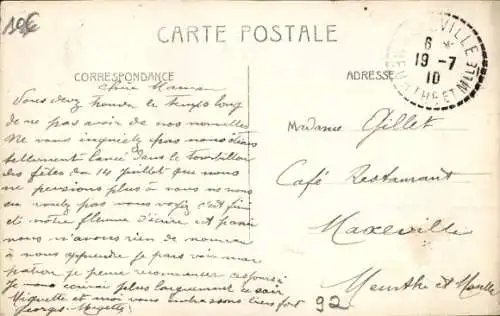 10€
CARTE POSTALE
VILLE
6 *
19-7
10
MEURTHE ET MLLE
CORRESPONDANCE
ADRESSE
Chère Maman
Vous devez trouver le temps long
de ne pas avoir de nos nouvelles
Ne vous inquiétez pas nous étions
tellement lancé dans le tourbillon
des fêtes du 14 juillet que nous
ne pensions plus à vous ne nous
en voulez pas vous voyez c'est fini
et notre flemme d'écrire est passé
nous n'avons rien de nouveau
à nous apprendre je pars voir mon
patron je pense recommencer
Je vous écrirai plus longuement ce soir
Miquette et moi vous embrassons bien fort
Georges Miquette
Madame Gillet
Café Restaurant
Maxeville
Meurthe et Moselle
92